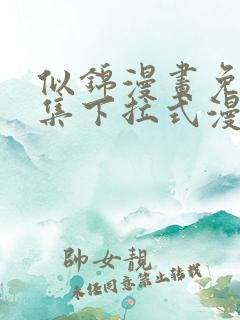 似錦漫畫免
集下拉式漫
帥女靚
未经同意禁止转载